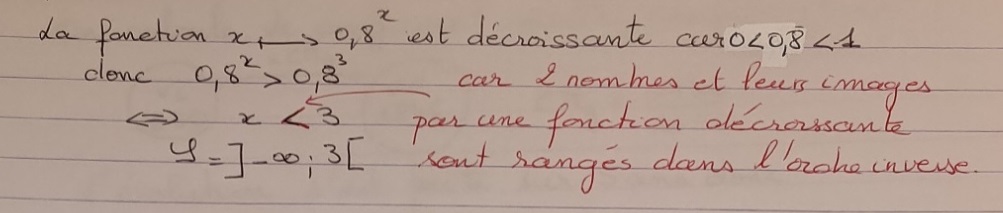 La fonction x ⟼ 0,8^x est décroissante car 0<0,8<1
donc 0,8^x > 0,8^3 car 2 nombres et leurs images
⟺ x < 3 par une fonction décroissante
𝒮 = ]-∞; 3[ sont rangés dans l'ordre inverse.